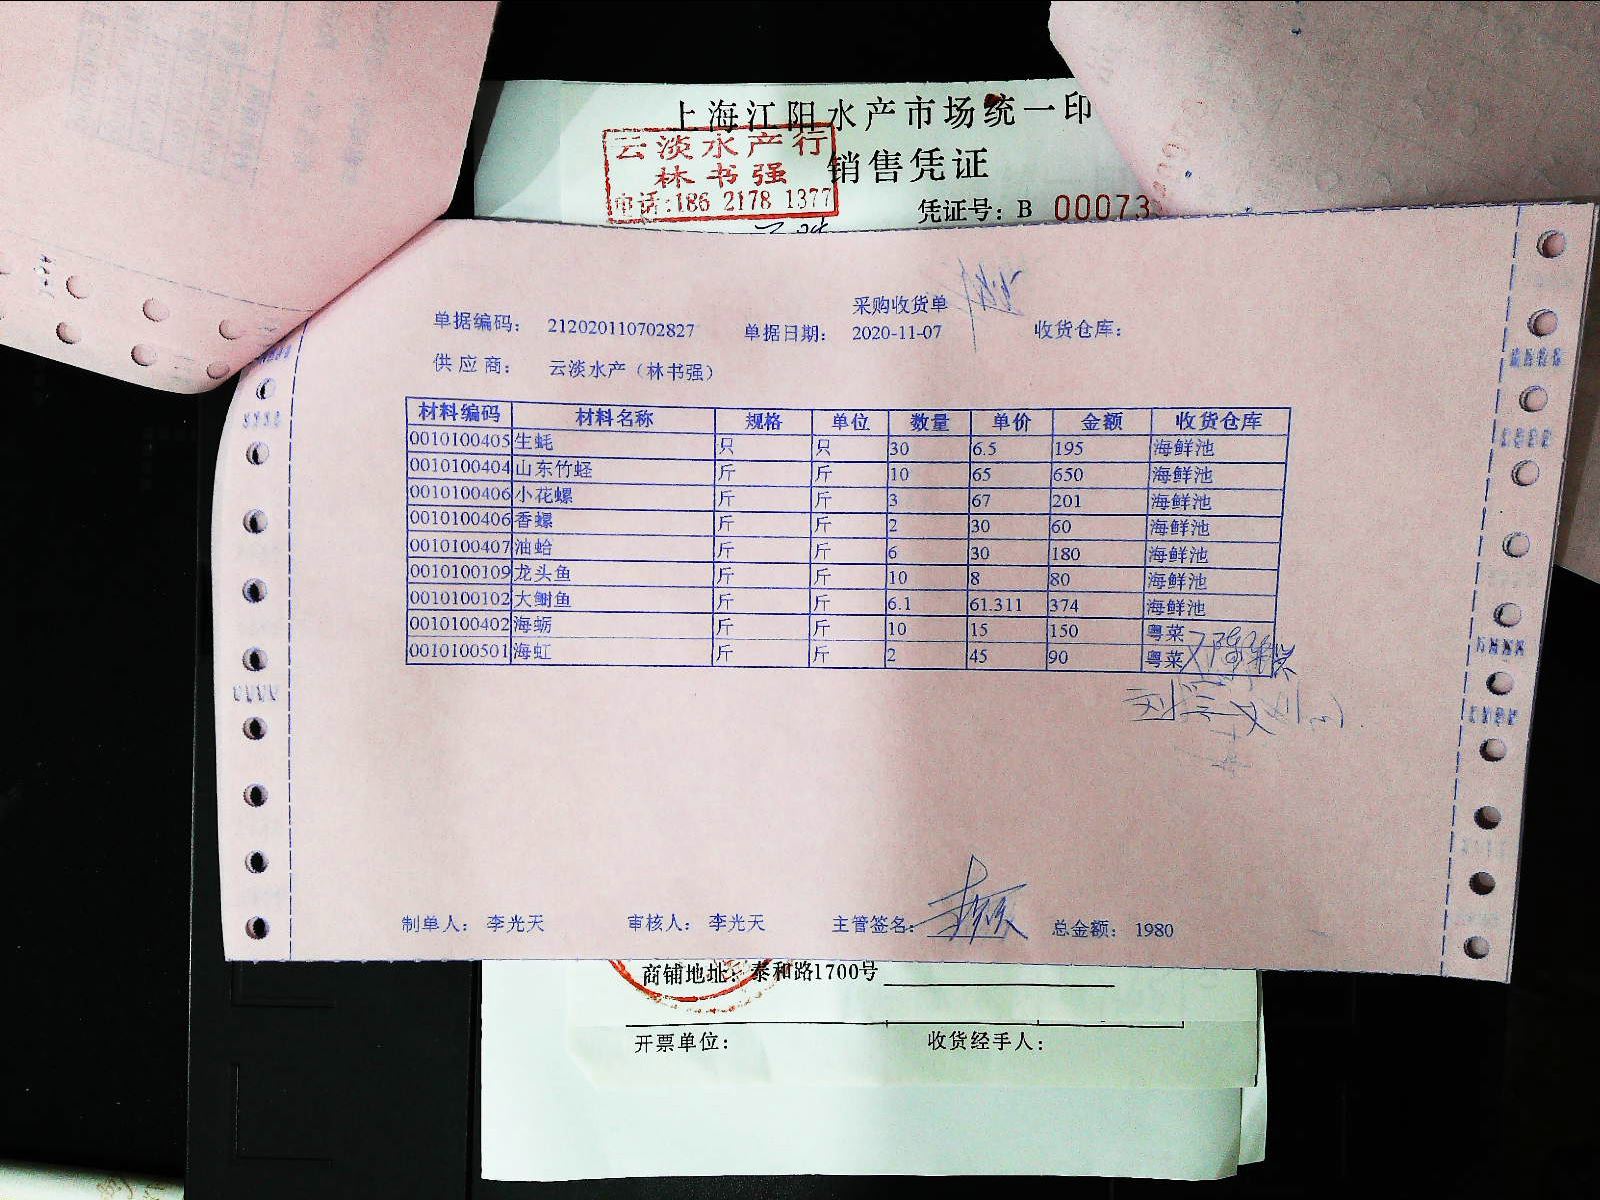 上海江阳水产市场统一印
云淡水产行
林书强
电话:186 2178 1377
销售凭证
凭证号: B 00073
采购收货单
单据编码: 212020110702827 单据日期: 2020-11-07 收货仓库:
供应商: 云淡水产（林书强）
材料编码 材料名称 规格 单位 数量 单价 金额 收货仓库
0010100405 生蚝 只 只 30 6.5 195 海鲜池
0010100404 山东竹蛏 斤 斤 10 65 650 海鲜池
0010100406 小花螺 斤 斤 3 67 201 海鲜池
0010100406 香螺 斤 斤 2 30 60 海鲜池
0010100407 油蛤 斤 斤 6 30 180 海鲜池
0010100109 龙头鱼 斤 斤 10 8 80 海鲜池
0010100102 大鲥鱼 斤 斤 6.1 61.311 374 海鲜池
0010100402 海蛎 斤 斤 10 15 150 粤菜
0010100501 海虹 斤 斤 2 45 90 粤菜
制单人: 李光天 审核人: 李光天 主管签名: 总金额: 1980
商铺地址: 泰和路1700号
开票单位: 收货经手人: